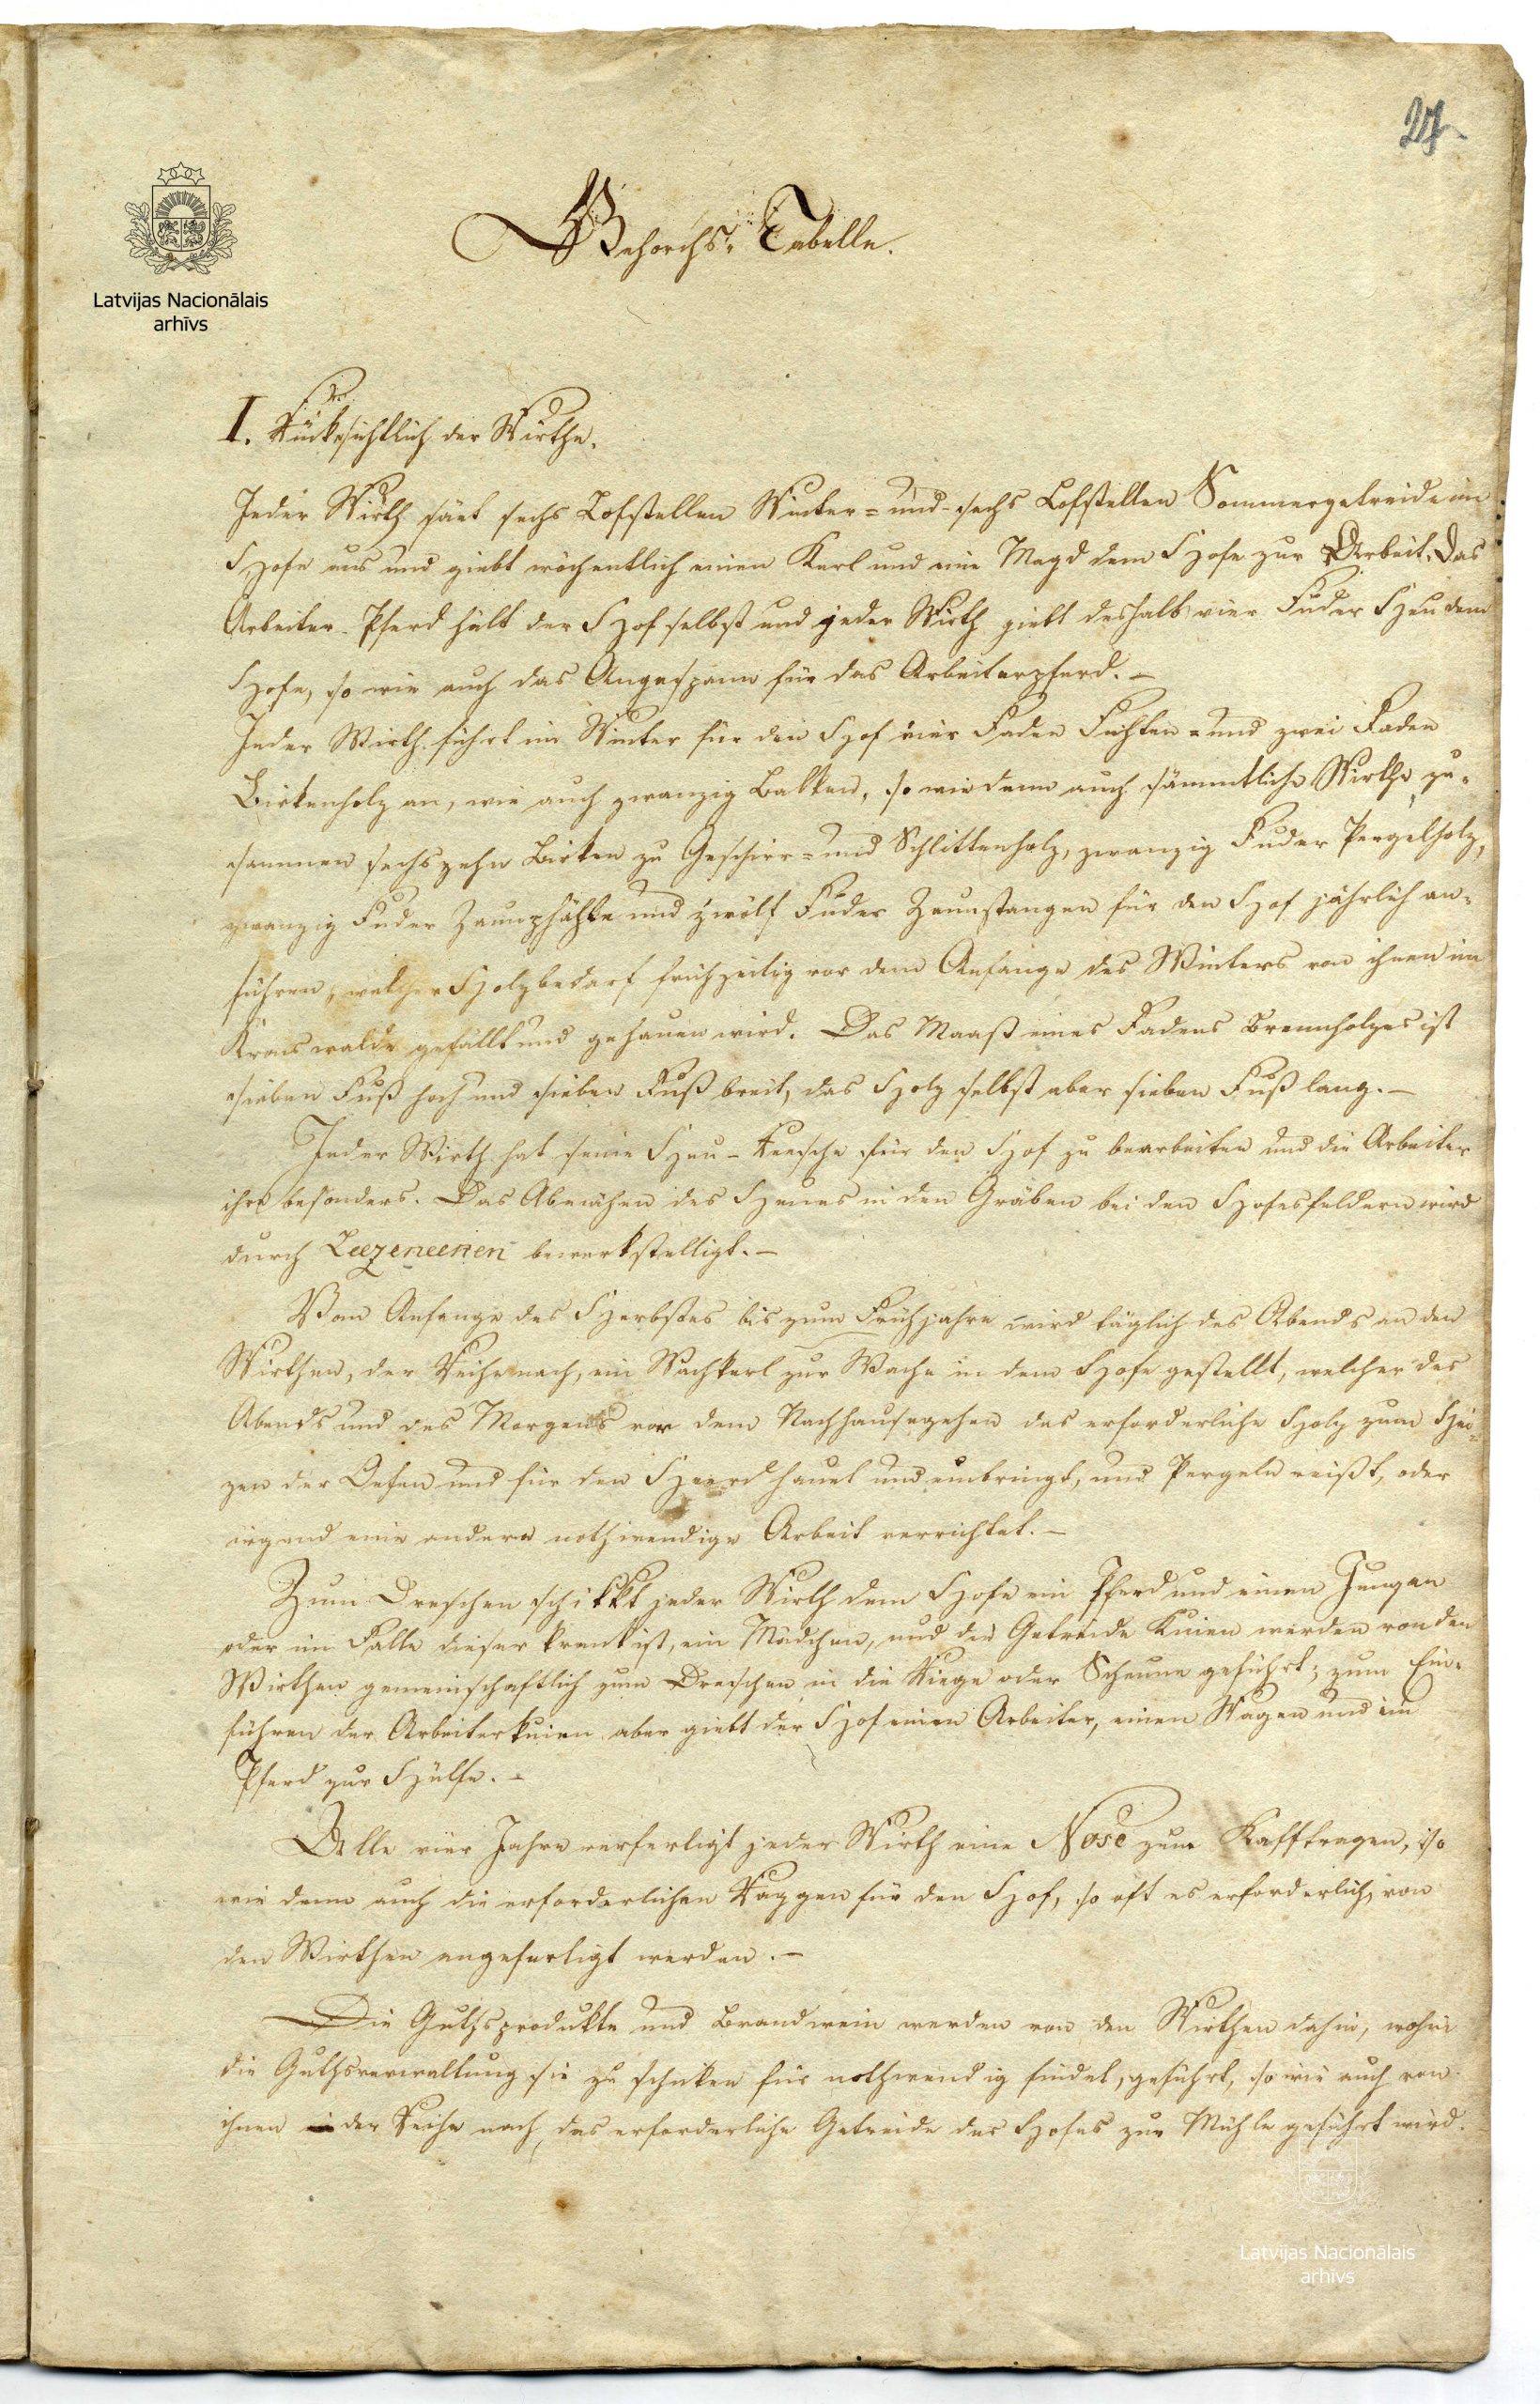 27.
Latvijas Nacionālais
arhīvs
Gehorchs-Tabelle.
I. Rüksichtlich der Wirthe.
Jeder Wirth säet sechs Lofstellen Winter- und sechs Lofstellen Sommergetreide im
Hofe aus und giebt wöchentlich einen Kerl und eine Magd dem Hofe zur Arbeit. Das
Arbeiter-Pferd hält der Hof selbst und jeder Wirth giebt deshalb vier Fuder Heu dem
Hofe, so wie auch das Angespann für das Arbeiterpferd. –
Jeder Wirth führt im Winter für den Hof vier Faden Fichten- und zwei Faden
Birkenholz an, wie auch zwanzig Balken, so wie denn auch sämmtliche Wirthe zu-
sammen sechszehn Birken zu Geschirr- und Schlittenholz, zwanzig Fuder Pergelholz,
zwanzig Fuder Zaunpfähle und zwölf Fuder Zaunstangen für den Hof jährlich an-
führen, welcher Holzbedarf frühzeitig vor dem Anfange des Winters von ihnen im
Kronswalde gefällt und gehauen wird. Das Maaß eines Fadens Brennholzes ist
sieben Fuß hoch und sieben Fuß breit, das Holz selbst aber sieben Fuß lang. –
Jeder Wirth hat seine Heu- für den Hof zu bearbeiten und die Arbeiter
ihre besonders. Das Abmähen des Heues in den Gräben bei den Hofesfeldern wird
durch Leezeneeken bewerkstelligt. –
Vom Anfange des Herbstes bis zum Frühjahre wird täglich des Abends an den
Wirthen, der Reihe nach, ein Wachkerl zur Wache in dem Hofe gestellt, welcher des
Abends und des Morgens vor dem Nachhausegehen das erforderliche Holz zum Hei-
zen der Oefen und für den Heerd hauet und einbringt, und Pergeln reißt, oder
irgend eine andere nothwendige Arbeit verrichtet. –
Zum Dreschen schikkt jeder Wirth dem Hofe ein Pferd und einen Jungen
oder im Falle dieser krank ist, ein Mädchen, und die Getreide Kuien werden von den
Wirthen gemeinschaftlich zum Dreschen in die Riege oder Scheune geführt; zum Ein-
führen der Arbeiterkuien aber giebt der Hof einen Arbeiter, einen Wagen und ein
Pferd zur Hülfe. –
Alle vier Jahre verfertigt jeder Wirth eine Nose zum Kafftragen, so
wie denn auch die erforderlichen Raggen für den Hof, so oft es erforderlich, von
den Wirthen angefertigt werden. –
Die Guthsprodukte und Brandwein werden von den Wirthen dahin, wohin
die Guthsverwaltung sie zu schicken für nothwendig findet, geführt, so wie auch von
ihnen der Reihe nach, das erforderliche Getreide des Hofes zur Mühle geführt wird.
Latvijas Nacionālais
arhīvs